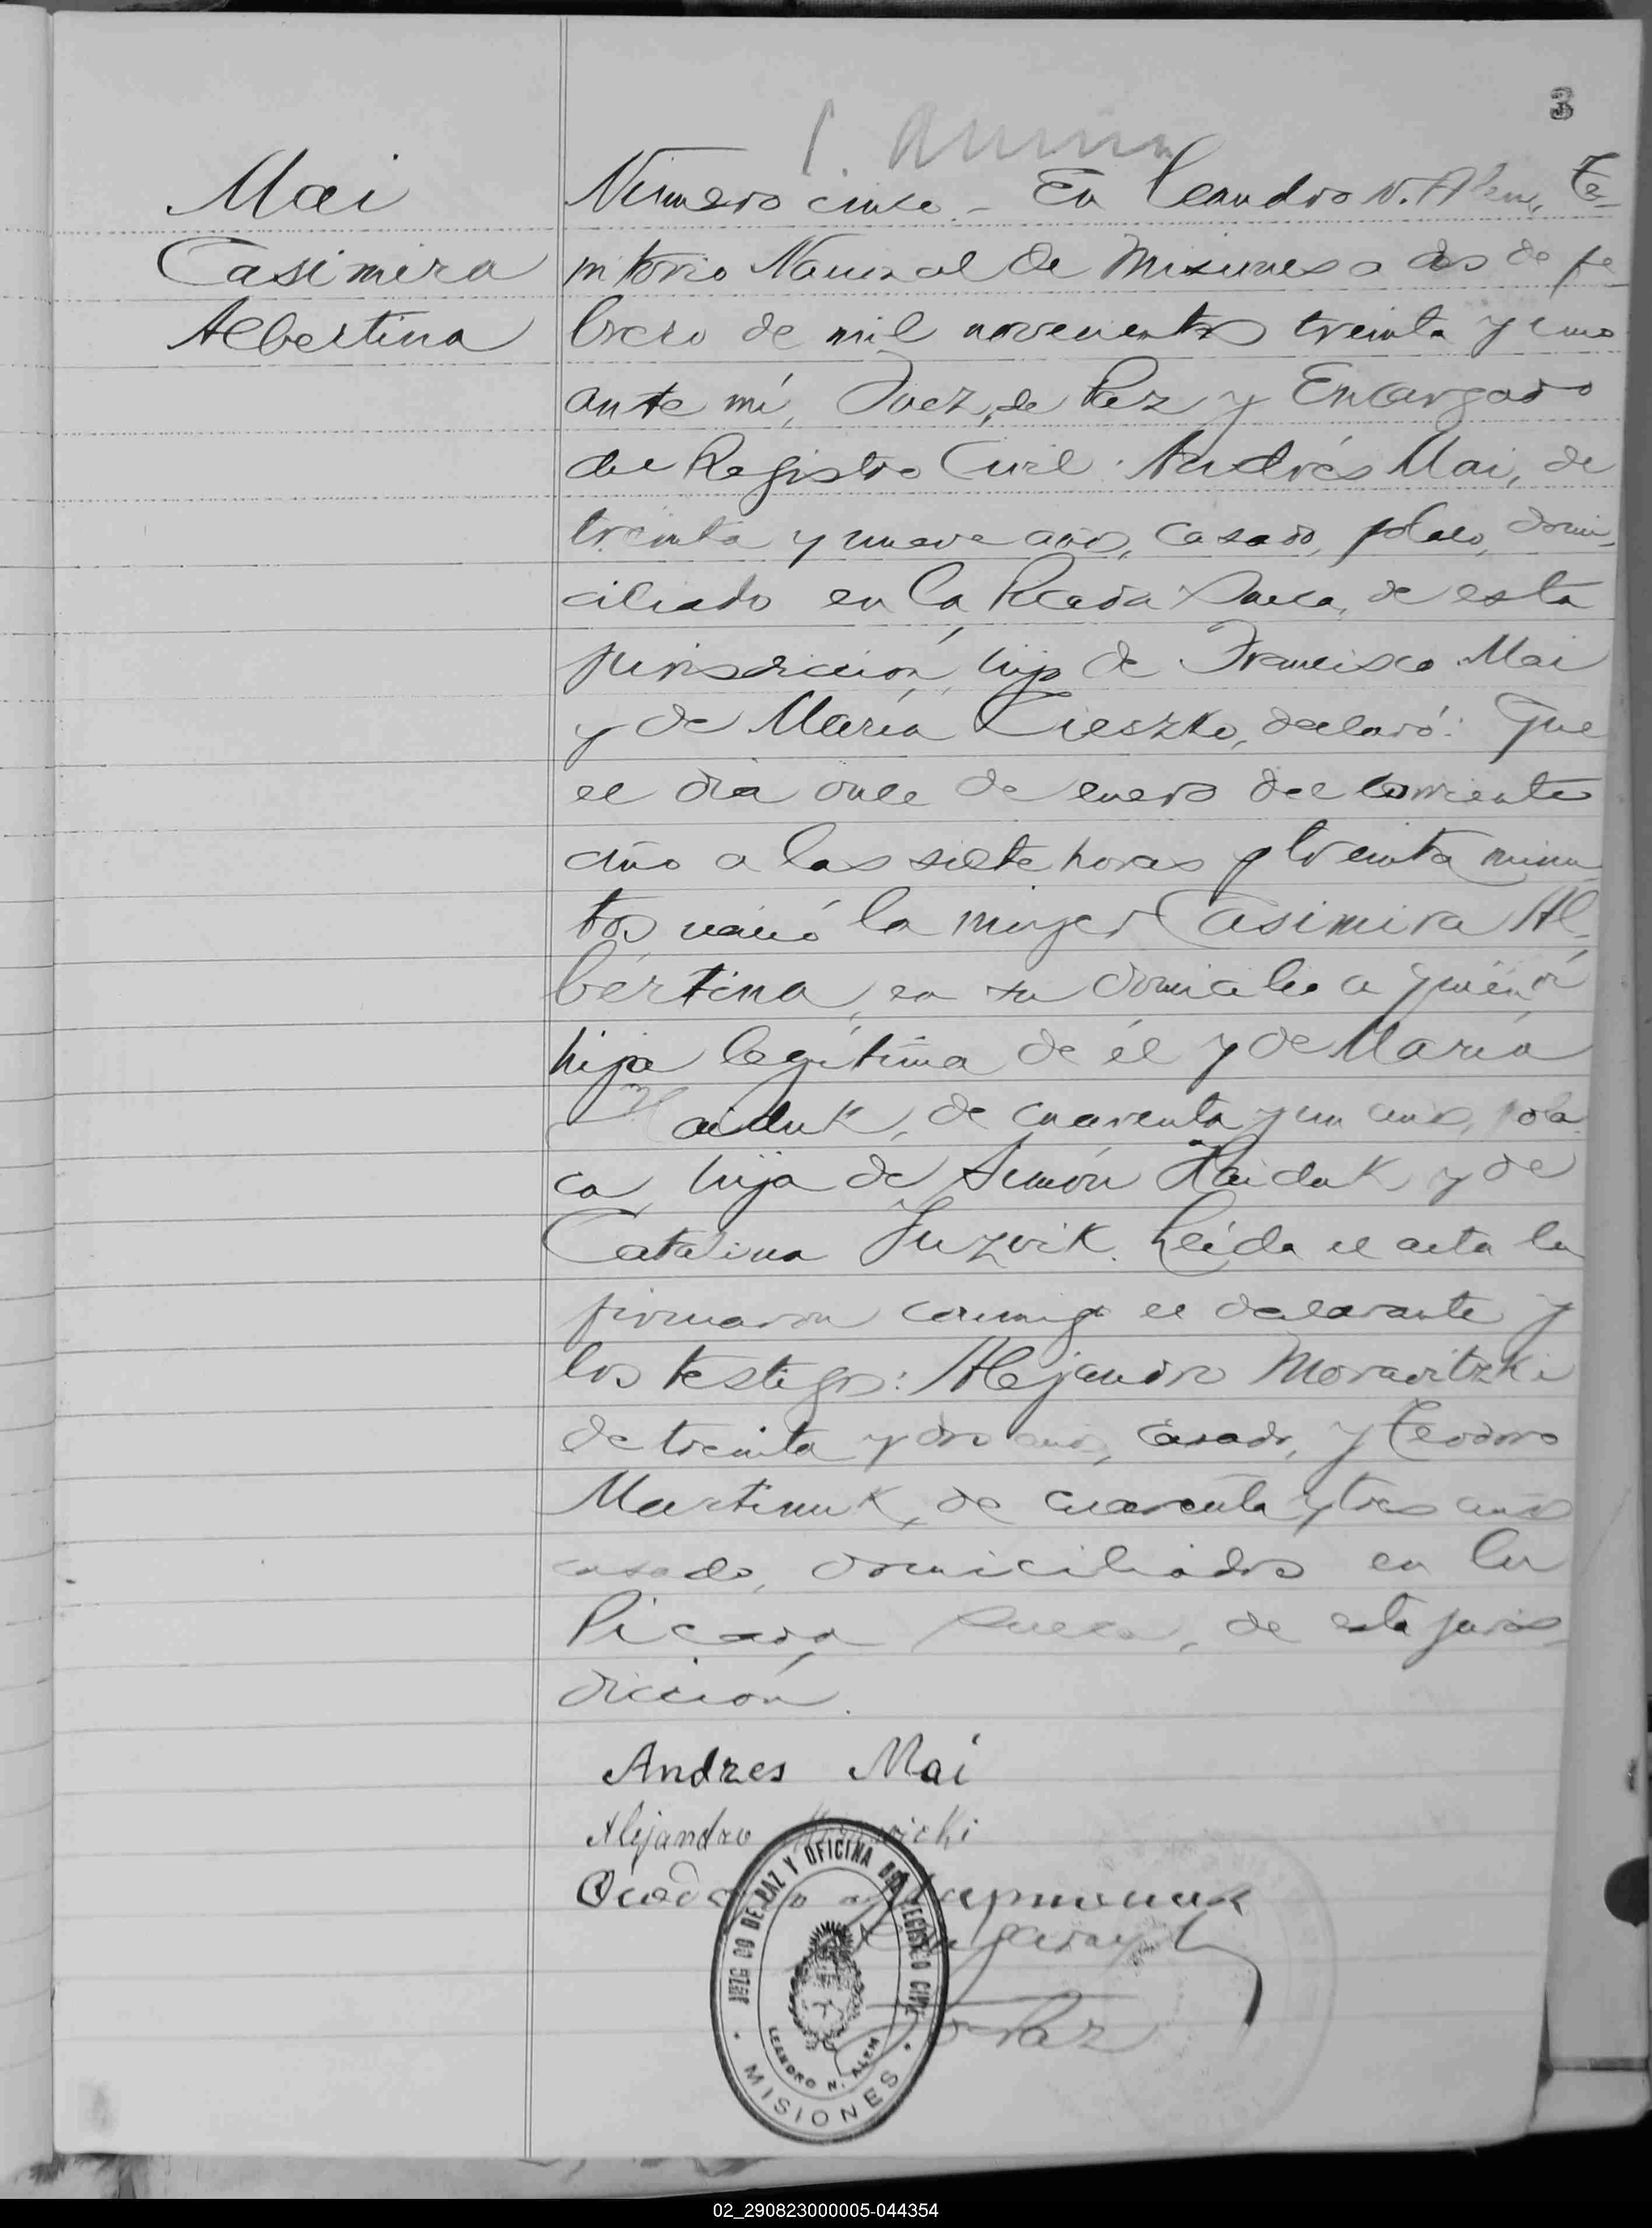 3
Mai
Casimira
Albertina
Número cinco.- En Leandro N. Alem, Te-
rritorio Nacional de Misiones a dos de fe-
brero de mil novecientos treinta y uno
ante mí, Juez de Paz y Encargado
del Registro Civil: Andrés Mai, de
treinta y nueve años, casado, polaco, domi-
ciliado en la Picada Sueca, de esta
jurisdicción, hijo de Francisco Mai
y de María Cieszko, declaró: Que
el día once de enero del corriente
año a las siete horas y treinta minu-
tos nació la mujer Casimira Al-
bertina, en su domicilio
hija legítima de él y de María
Haiduk, de cuarenta y un años, pola-
ca, hija de Simón Haiduk y de
Catalina Juzvik. Leída el acta la
firmaron conmigo el declarante y
los testigos: Alejandro Moravitzki
de treinta y dos años, casado, y Teodoro
Martinuk, de cuarenta y tres años
casado, domiciliados en la
Picada Sueca, de esta juris-
dicción.
Andres Mai
Alejandro
JUZGADO DE PAZ Y OFICINA DEL REGISTRO CIVIL
LEANDRO N. ALEM
MISIONES
J. de Paz
02_290823000005-044354